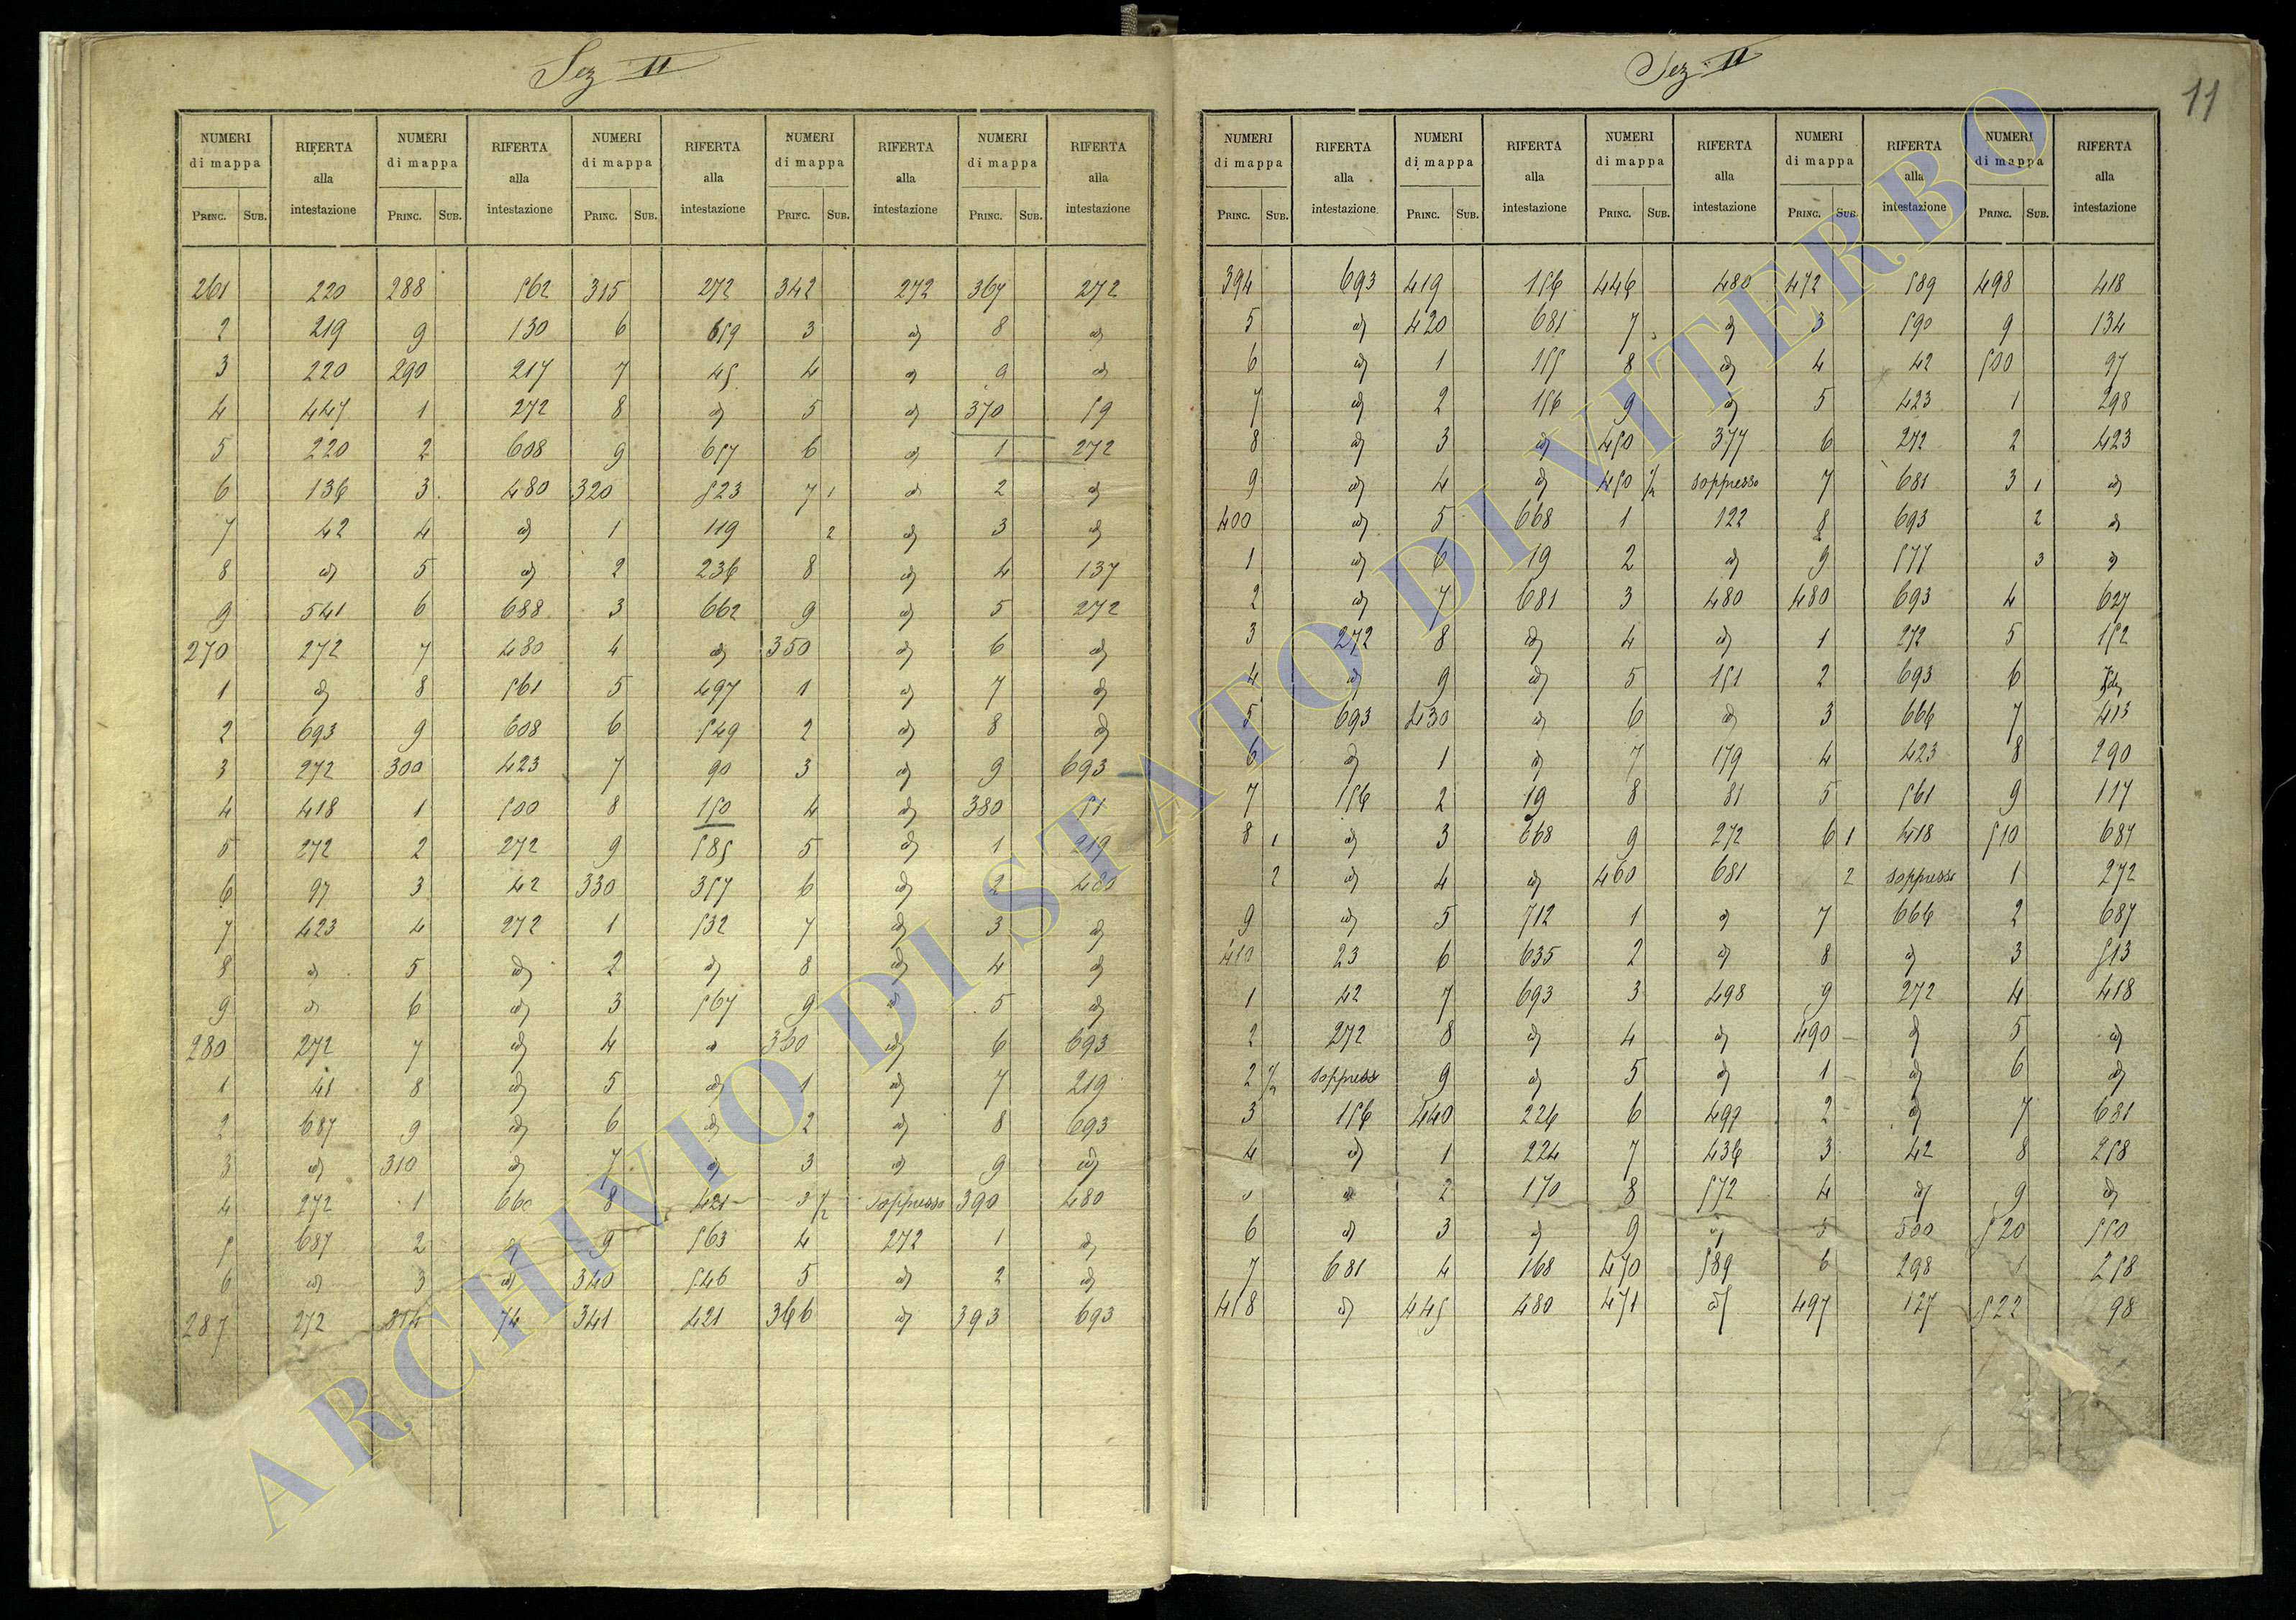 Sez II
NUMERI di mappa RIFERTA alla intestazione NUMERI di mappa RIFERTA alla intestazione NUMERI di mappa RIFERTA alla intestazione NUMERI di mappa RIFERTA alla intestazione NUMERI di mappa RIFERTA alla intestazione
PRINC. SUB. PRINC. SUB. PRINC. SUB. PRINC. SUB. PRINC. SUB.
261 220 288 562 315 272 342 272 367 272
2 219 9 130 6 659 3 id 8 id
3 220 290 217 7 45 4 id 9 id
4 447 1 272 8 id 5 id 370 59
5 220 2 608 9 657 6 id 1 272
6 136 3 480 320 523 7 1 id 2 id
7 42 4 id 1 119 2 id 3 id
8 id 5 id 2 236 8 id 4 137
9 541 6 688 3 662 9 id 5 272
270 272 7 480 4 id 350 id 6 id
1 id 8 561 5 497 1 id 7 id
2 693 9 608 6 549 2 id 8 id
3 272 300 423 7 90 3 id 9 693
4 418 1 500 8 150 4 id 380 51
5 272 2 272 9 585 5 id 1 219
6 97 3 42 330 357 6 id 2 480
7 423 4 272 1 532 7 id 3 id
8 id 5 id 2 id 8 id 4 id
9 id 6 id 3 567 9 id 5 id
280 272 7 id 4 id 360 id 6 693
1 41 8 id 5 id 1 id 7 219
2 687 9 id 6 id 2 id 8 693
3 id 310 id 7 id 3 id 9 id
4 272 1 660 8 421 3 1/2 soppresso 390 480
5 687 2 id 9 563 4 272 1 id
6 id 3 id 340 546 5 id 2 id
287 272 314 74 341 421 366 id 393 693
Sez. II
11
NUMERI di mappa RIFERTA alla intestazione NUMERI di mappa RIFERTA alla intestazione NUMERI di mappa RIFERTA alla intestazione NUMERI di mappa RIFERTA alla intestazione NUMERI di mappa RIFERTA alla intestazione
PRINC. SUB. PRINC. SUB. PRINC. SUB. PRINC. SUB. PRINC. SUB.
394 693 419 156 446 480 472 589 498 418
5 id 420 681 7 id 3 590 9 134
6 id 1 155 8 id 4 42 500 97
7 id 2 156 9 id 5 423 1 298
8 id 3 id 450 377 6 272 2 423
9 id 4 id 450 1/2 soppresso 7 681 3 1 id
400 id 5 668 1 122 8 693 2 id
1 id 6 19 2 id 9 577 3 id
2 id 7 681 3 480 480 693 4 627
3 272 8 id 4 id 1 272 5 152
4 id 9 id 5 151 2 693 6
5 693 430 id 6 id 3 666 7 413
6 id 1 id 7 179 4 423 8 290
7 156 2 19 8 81 5 561 9 117
8 1 id 3 668 9 272 6 1 418 510 687
2 id 4 id 460 681 2 soppresso 1 272
9 id 5 712 1 id 7 666 2 687
410 23 6 635 2 id 8 id 3 513
1 42 7 693 3 498 9 272 4 418
2 272 8 id 4 id 490 id 5 id
2 1/2 soppresso 9 id 5 id 1 id 6 id
3 156 440 226 6 499 2 id 7 681
4 id 1 224 7 436 3 42 8 258
id 2 170 8 572 4 id 9 id
6 id 3 id 9 id 5 500 520 550
7 681 4 168 470 589 6 298 1 258
418 id 445 480 471 id 497 127 522 98
ARCHIVIO DI STATO DI VITERBO